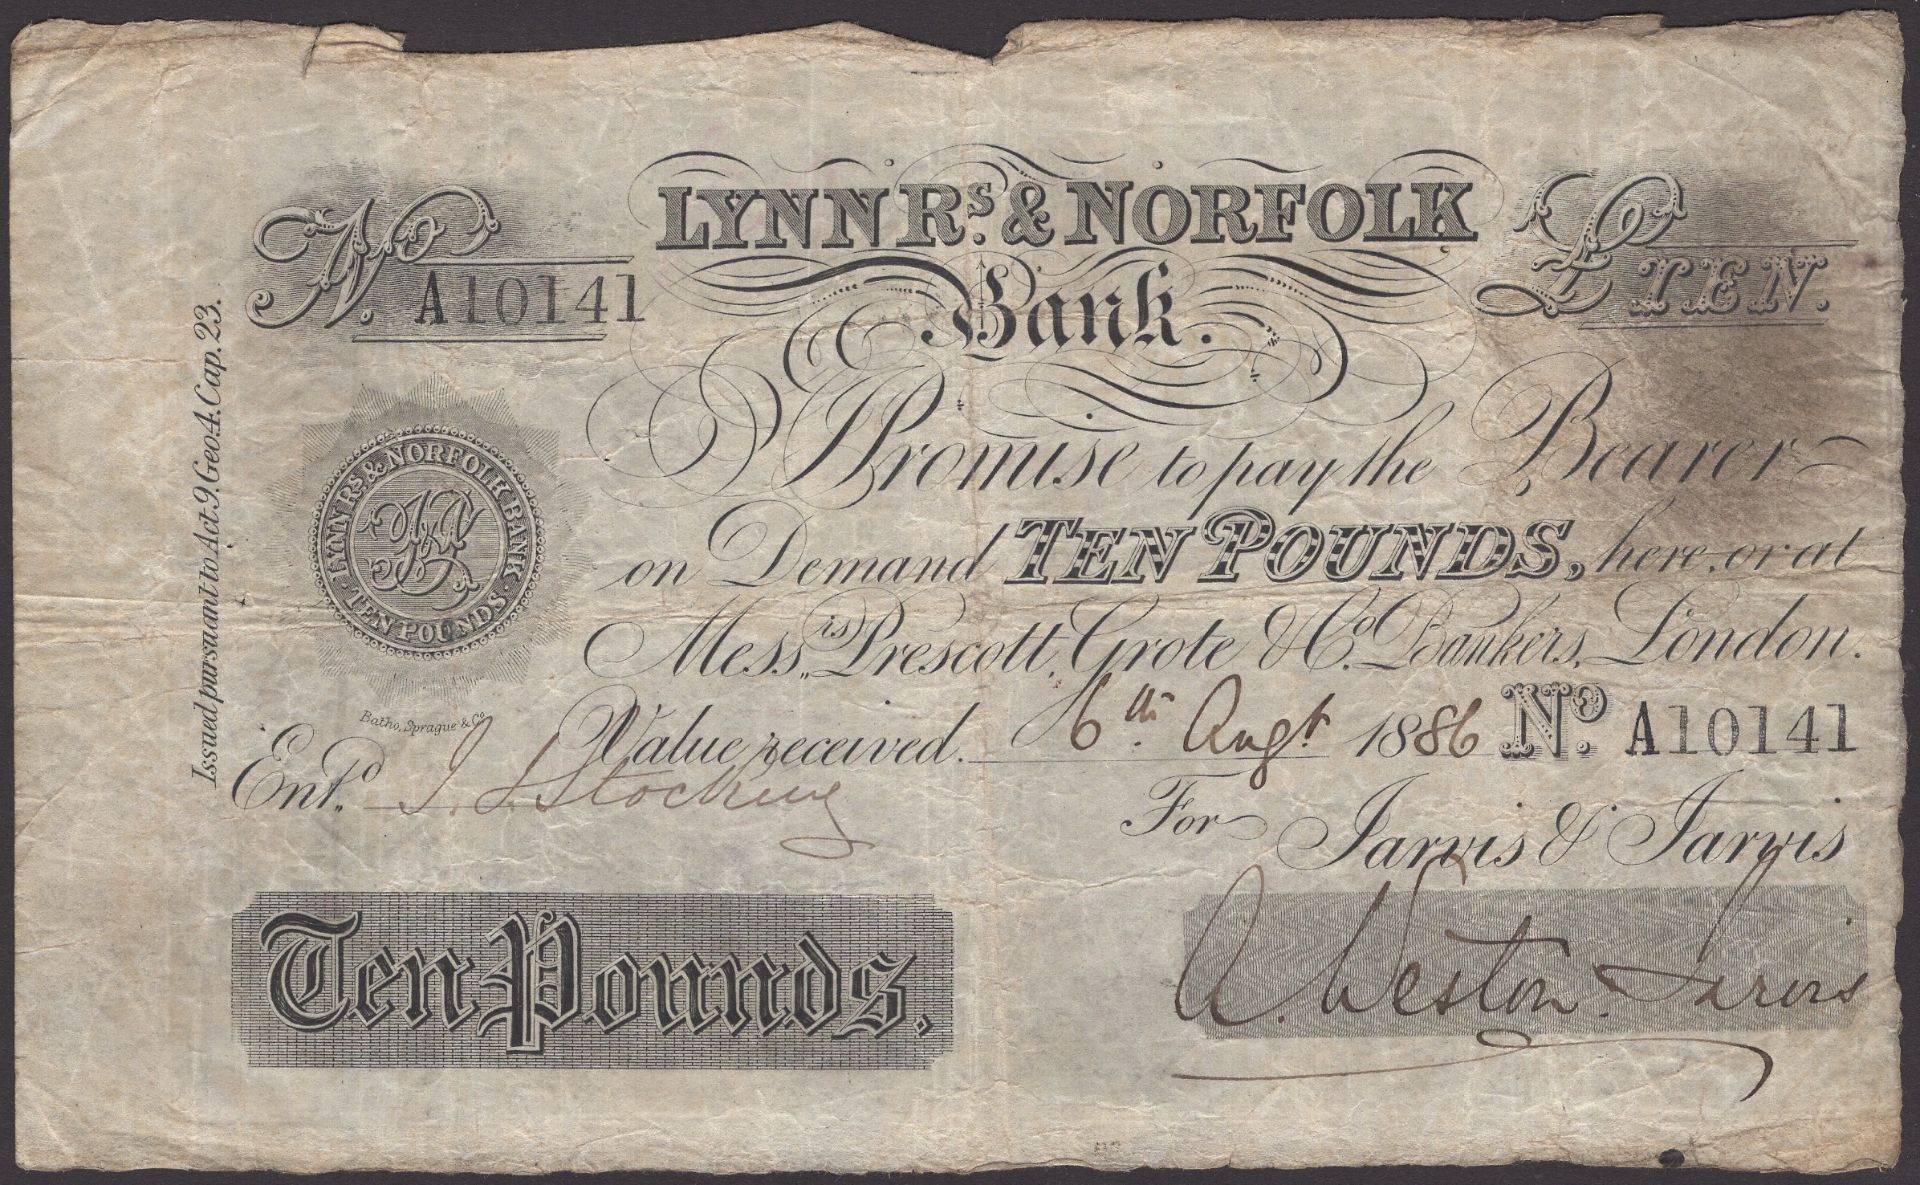 LYNN Rs. & NORFOLK
Bank.
No. A10141
£ TEN.
I Promise to pay the Bearer
on Demand TEN POUNDS, here, or at
Messrs. Prescott, Grote & Co. Bankers, London.
Value received. 6th. Augt 1886 No. A10141
Entd. J. Stocking
For Jarvis & Jarvis
A. Weston Jarvis
Ten Pounds.
Issued pursuant to Act 9. Geo 4. Cap. 23.
LYNN Rs & NORFOLK BANK
TEN POUNDS
J&J
Batho, Sprague & Co.